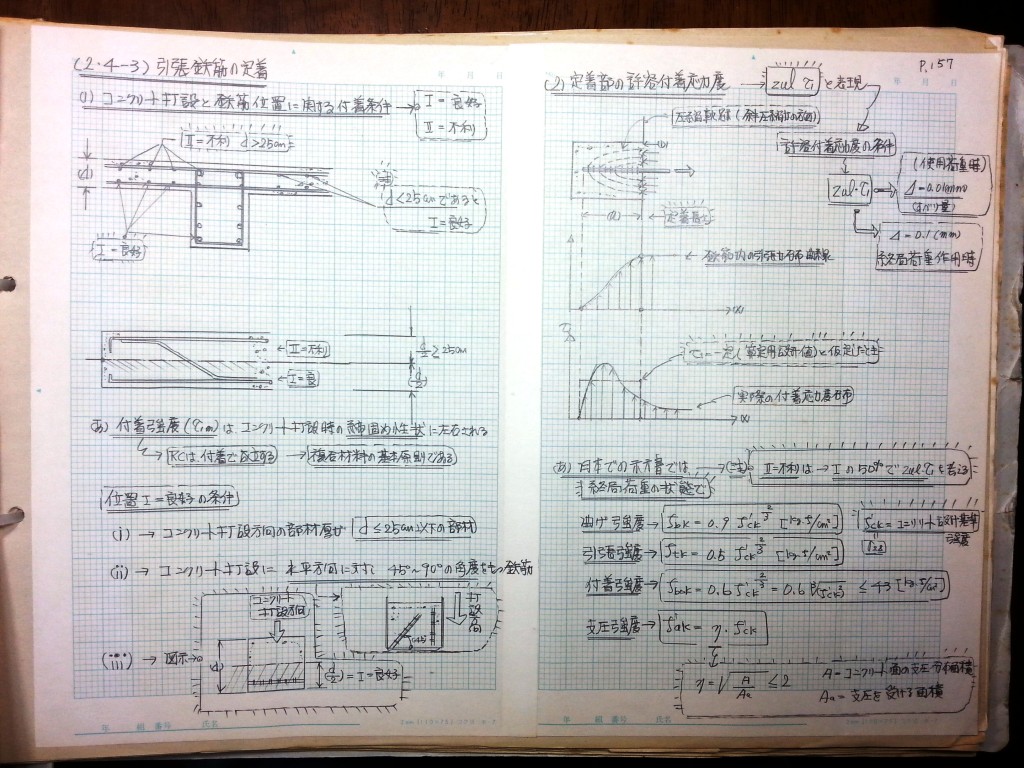 (2・4-3) 引張鉄筋の定着
(1) コンクリート打設と鉄筋位置に関する付着条件 → I = 良好
II = 不利
II = 不利 d>25cm
(d)
d<25cmであると
I = 良好
I = 良好
← II = 不利
← I = 良
d/2 ≥ 25cm
(d/2)
(あ) 付着強度(τ1m)はコンクリート打設時の
に左右される
→ RCは付着で成立する → 複合材料の基本原則である
位置 I = 良好の条件
(i) → コンクリート打設方向の部材厚が d ≤ 25cm以下の部材
(ii) → コンクリート打設に水平方向に対して 45°~90°の角度をもつ鉄筋
コンクリート
打設方向
打設方向
45°
(iii) → 図示→
(d)
(d/2) = I = 良好
年 組 番号 氏名
P.157
年 月 日
(2) 定着部の許容付着応力度 → zul τ1 と表現
許容付着応力度の条件
zul・τ1
(使用荷重時)
Δ = 0.01(mm)
(すべり量)
Δ = 0.1(mm)
終局荷重作用時
(a)
定着長さ
← 鉄筋内の引張力分布曲線
→(x)
τ1
τ1 = 一定(算定用設計値)と仮定したとき
実際の付着応力度分布
→(x)
(あ) 日本での示方書では、
終局荷重の状態で
→(注) II = 不利は → I の50%で zul τ1 を考える
曲げ強度→ fbk = 0.9 f'ck^2/3 [kgf/cm²]
f'ck = コンクリート設計基準
強度
引張強度→ ftk = 0.5 f'ck^2/3 [kgf/cm²]
付着強度→ fbok = 0.6 f'ck^2/3 = 0.6 ∛(f'ck)² ≤ 43 [kgf/cm²]
支圧強度→ f'ak = η・f'ck
η = √(A/Aa) ≤ 2
A = コンクリート面の支圧分布面積
Aa = 支圧を受ける面積
年 組 番号 氏名